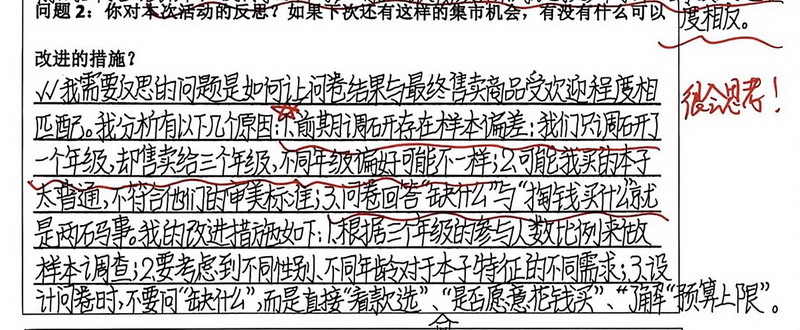 问题 2：你对本次活动的反思？如果下次还有这样的集市机会，有没有什么可以
度相反。
改进的措施？
√√我需要反思的问题是如何让问卷结果与最终售卖商品受欢迎程度相
匹配。我分析有以下几个原因：1.前期调研存在样本偏差：我们只调研了
很会思考！
一个年级，却售卖给三个年级，不同年级偏好可能不一样；2.可能我买的本子
太普通，不符合他们的审美标准；3.问卷回答“缺什么”与“掏钱买什么”就
是两码事。我的改进措施如下：1.根据三个年级的参与人数比例来做
样本调查；2.要考虑到不同性别、不同年龄对于本子特征的不同需求；3.设
计问卷时，不要问“缺什么”，而是直接“看款选”、“是否愿意花钱买”、“了解“预算上限”。